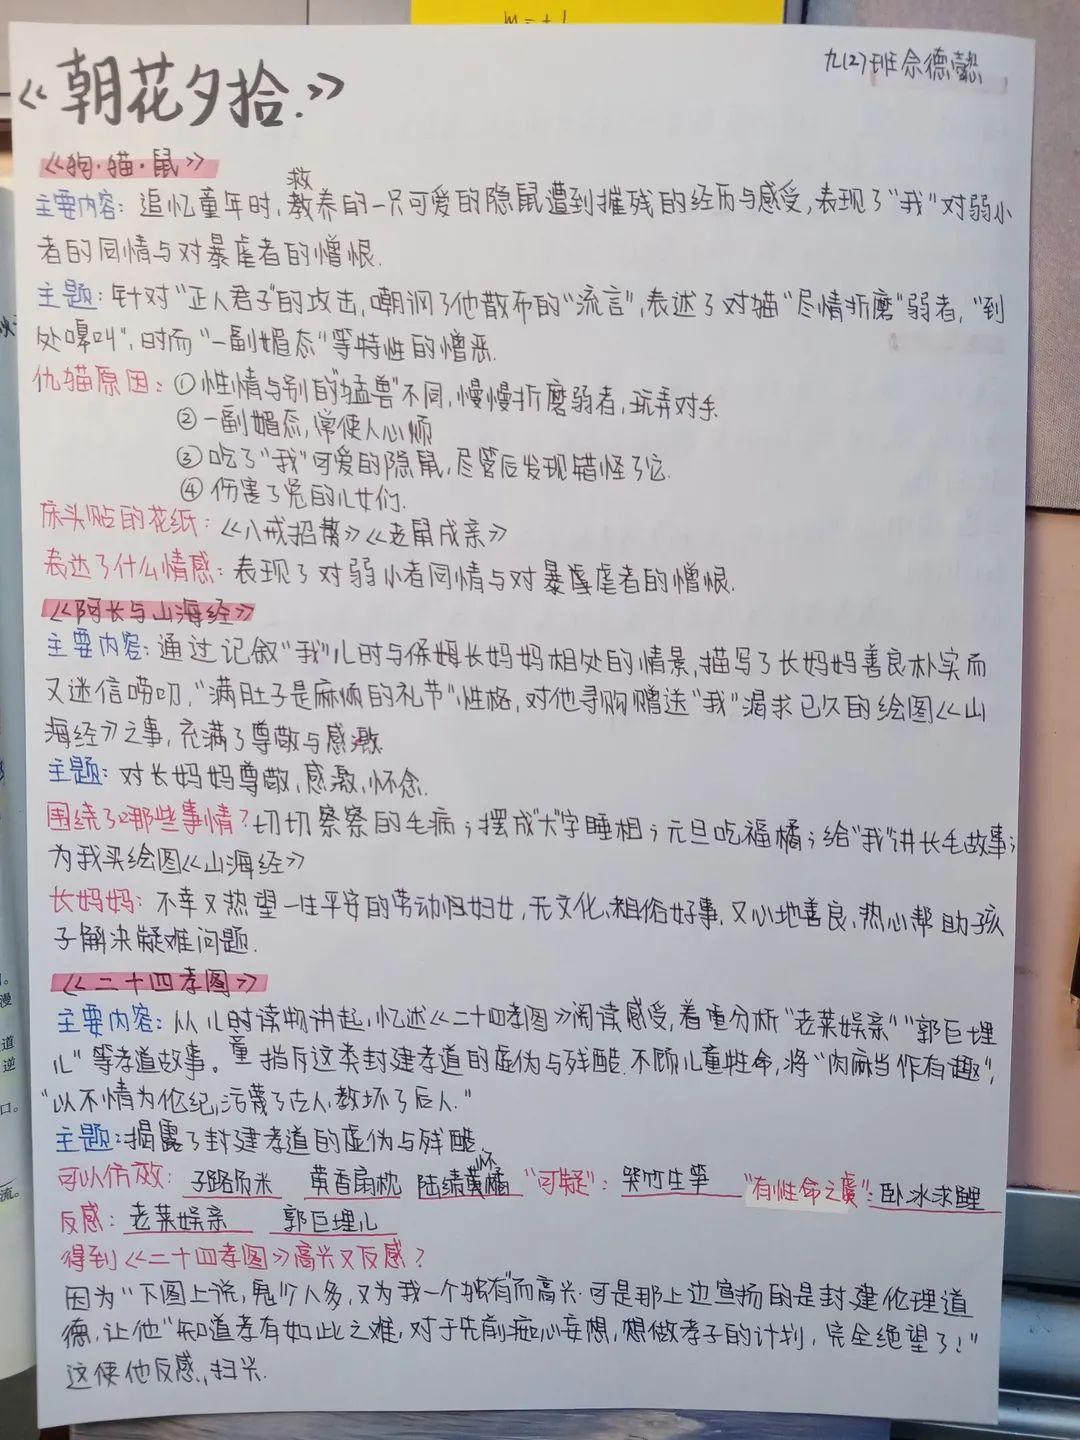 九(2)班佘德懿
《朝花夕拾.》
《狗·猫·鼠》
救
主要内容: 追忆童年时, 教养的一只可爱的隐鼠遭到摧残的经历与感受, 表现了"我"对弱小
者的同情与对暴虐者的憎恨.
主题: 针对"正人君子"的攻击, 嘲讽了他散布的"流言", 表述了对猫"尽情折磨"弱者, "到
处嗥叫", 时而"一副媚态"等特性的憎恶.
仇猫原因: ①性情与别的"猛兽"不同, 慢慢折磨弱者, 玩弄对手.
②一副媚态, 常使人心烦
③吃了"我"可爱的隐鼠, 尽管后发现错怪了它.
④伤害了兔的儿女们.
床头贴的花纸: 《八戒招赘》《老鼠成亲》
表达了什么情感: 表现了对弱小者同情与对暴虐者的憎恨.
《阿长与山海经》
主要内容: 通过记叙"我"儿时与保姆长妈妈相处的情景, 描写了长妈妈善良朴实而
又迷信唠叨, "满肚子是麻烦的礼节"性格, 对他寻购赠送"我"渴求已久的绘图《山
海经》之事, 充满了尊敬与感激.
主题: 对长妈妈尊敬, 感激, 怀念.
围绕了哪些事情? 切切察察的毛病; 摆成"大"字睡相; 元旦吃福橘; 给"我"讲长毛故事;
为我买绘图《山海经》
长妈妈: 不幸又热望一生平安的劳动妇女, 无文化、粗俗好事, 又心地善良、热心帮助孩
子解决疑难问题.
《二十四孝图》
主要内容: 从儿时读物讲起, 忆述《二十四孝图》阅读感受, 着重分析"老莱娱亲" "郭巨埋
儿"等孝道故事。重指斥这类封建孝道的虚伪与残酷. 不顾儿童性命, 将"肉麻当作有趣",
"以不情为伦纪, 污蔑了古人, 教坏了后人."
主题: 揭露了封建孝道的虚伪与残酷.
可以仿效: 子路负米 黄香扇枕 陆绩怀橘 "可疑": 哭竹生笋 "有性命之虞": 卧冰求鲤
反感: 老莱娱亲 郭巨埋儿
得到《二十四孝图》高兴又反感?
因为"下图上说, 鬼少人多, 又为我一个独有"而高兴. 可是那上边宣扬的是封建伦理道
德, 让他"知道孝有如此之难, 对于先前痴心妄想, 想做孝子的计划, 完全绝望了!"
这使他反感, 扫兴.